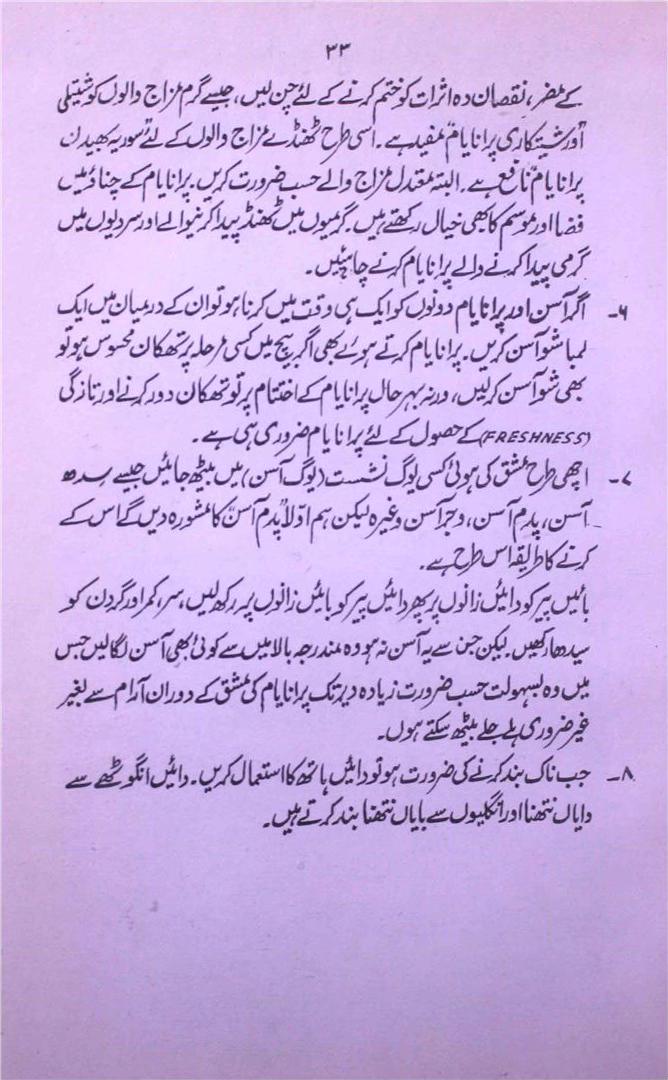 ۳۳
کے مضر، نقصان دہ اثرات کو ختم کرنے کے لئے چن لیں، جیسے گرم مزاج والوں کو شیتلی
اور شیتکاری پرانا یام مفید ہے۔ اسی طرح ٹھنڈے مزاج والوں کے لئے "سوریہ بھیدن
پرانا یام" نافع ہے۔ البتہ معتدل مزاج والے حسب ضرورت کریں۔ پرانا یام کے چناؤ میں
فضا اور موسم کا بھی خیال رکھتے ہیں۔ گرمیوں میں ٹھنڈ پیدا کرنیوالے اور سردیوں میں
گرمی پیدا کرنے والے پرانا یام کرنے چاہئیں۔
۶۔ اگر آسن اور پرانا یام دونوں کو ایک ہی وقت میں کرنا ہو تو ان کے درمیان میں ایک
لمبا شو آسن کریں۔ پرانا یام کرتے ہوئے بھی اگر بیچ میں کسی مرحلہ پر تھکان محسوس ہو تو
بھی شو آسن کرلیں، ورنہ بہرحال پرانا یام کے اختتام پر تو تھکان دور کرنے اور تازگی
(FRESHNESS) کے حصول کے لئے پرانا یام ضروری ہی ہے۔
۷۔ اچھی طرح مشق کی ہوئی کسی یوگ نشست (یوگ آسن) میں بیٹھ جائیں جیسے سدھ
آسن، پدم آسن، وجر آسن وغیرہ لیکن ہم اولاً "پدم آسن" کا مشورہ دیں گے اس کے
کرنے کا طریقہ اس طرح ہے۔
بائیں پیر کو دائیں زانوں پر پھر دائیں پیر کو بائیں زانوں پر رکھ لیں، سر، کمر اور گردن کو
سیدھا رکھیں۔ لیکن جن سے یہ آسن نہ ہو وہ مندرجہ بالا میں سے کوئی بھی آسن لگالیں جس
میں وہ بسہولت حسب ضرورت زیادہ دیر تک پرانا یام کی مشق کے دوران آرام سے بغیر
غیر ضروری ہلے جلے بیٹھ سکتے ہوں۔
۸۔ جب ناک بند کرنے کی ضرورت ہو تو دائیں ہاتھ کا استعمال کریں۔ دائیں انگوٹھے سے
دایاں نتھنا اور انگلیوں سے بایاں نتھنا بند کرتے ہیں۔